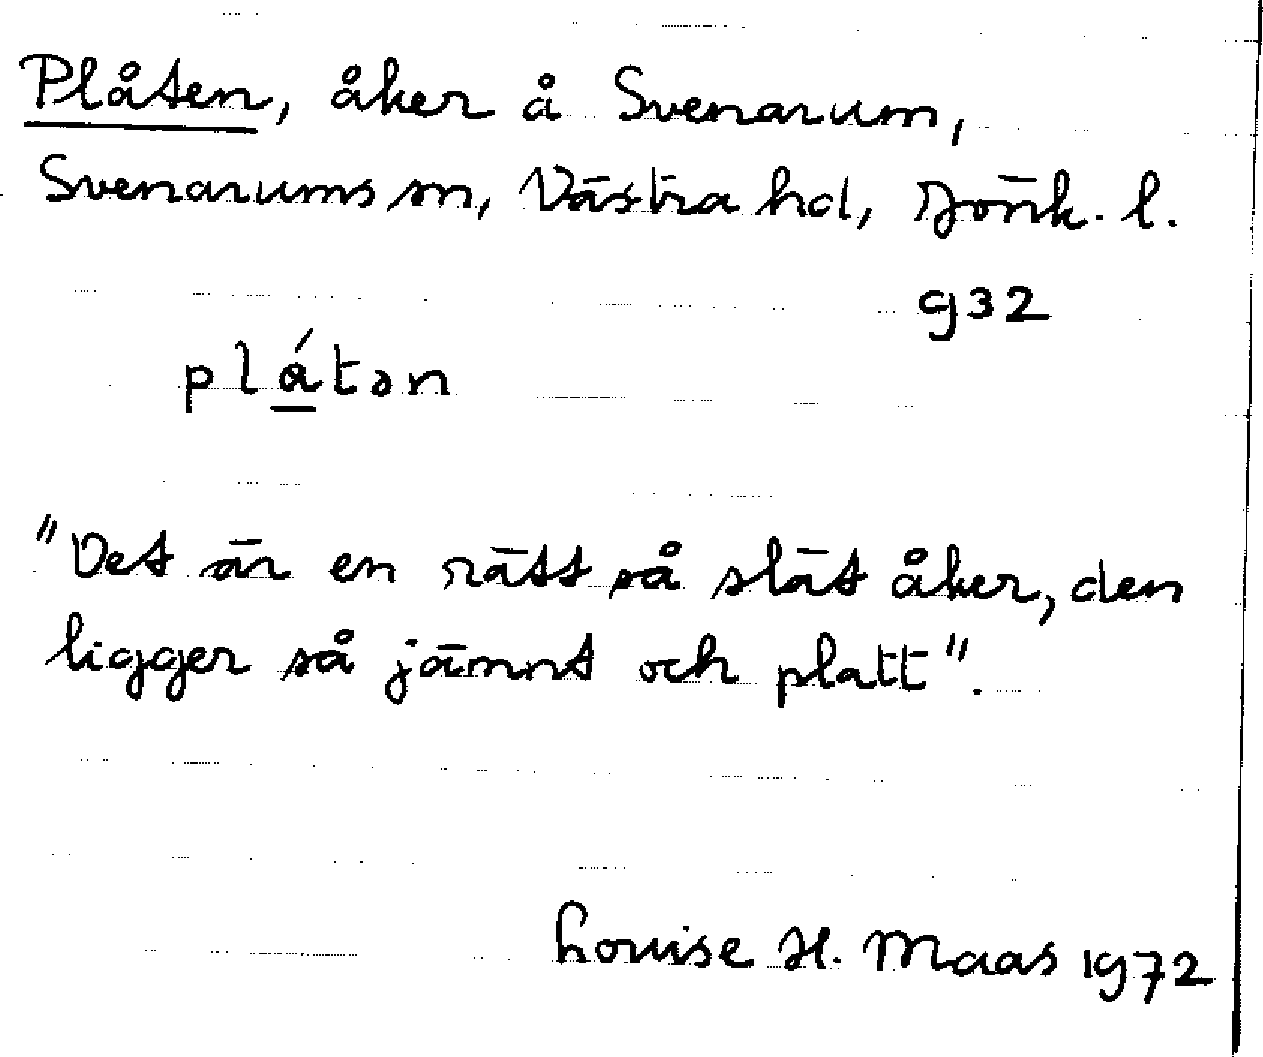 Plåten, åker å Svenarum,
Svenarums sn, Västra hd, Jönk. l.
932
plátən
"Det är en rätt så slät åker, den
ligger så jämnt och platt".
Louise H. Maas 1972